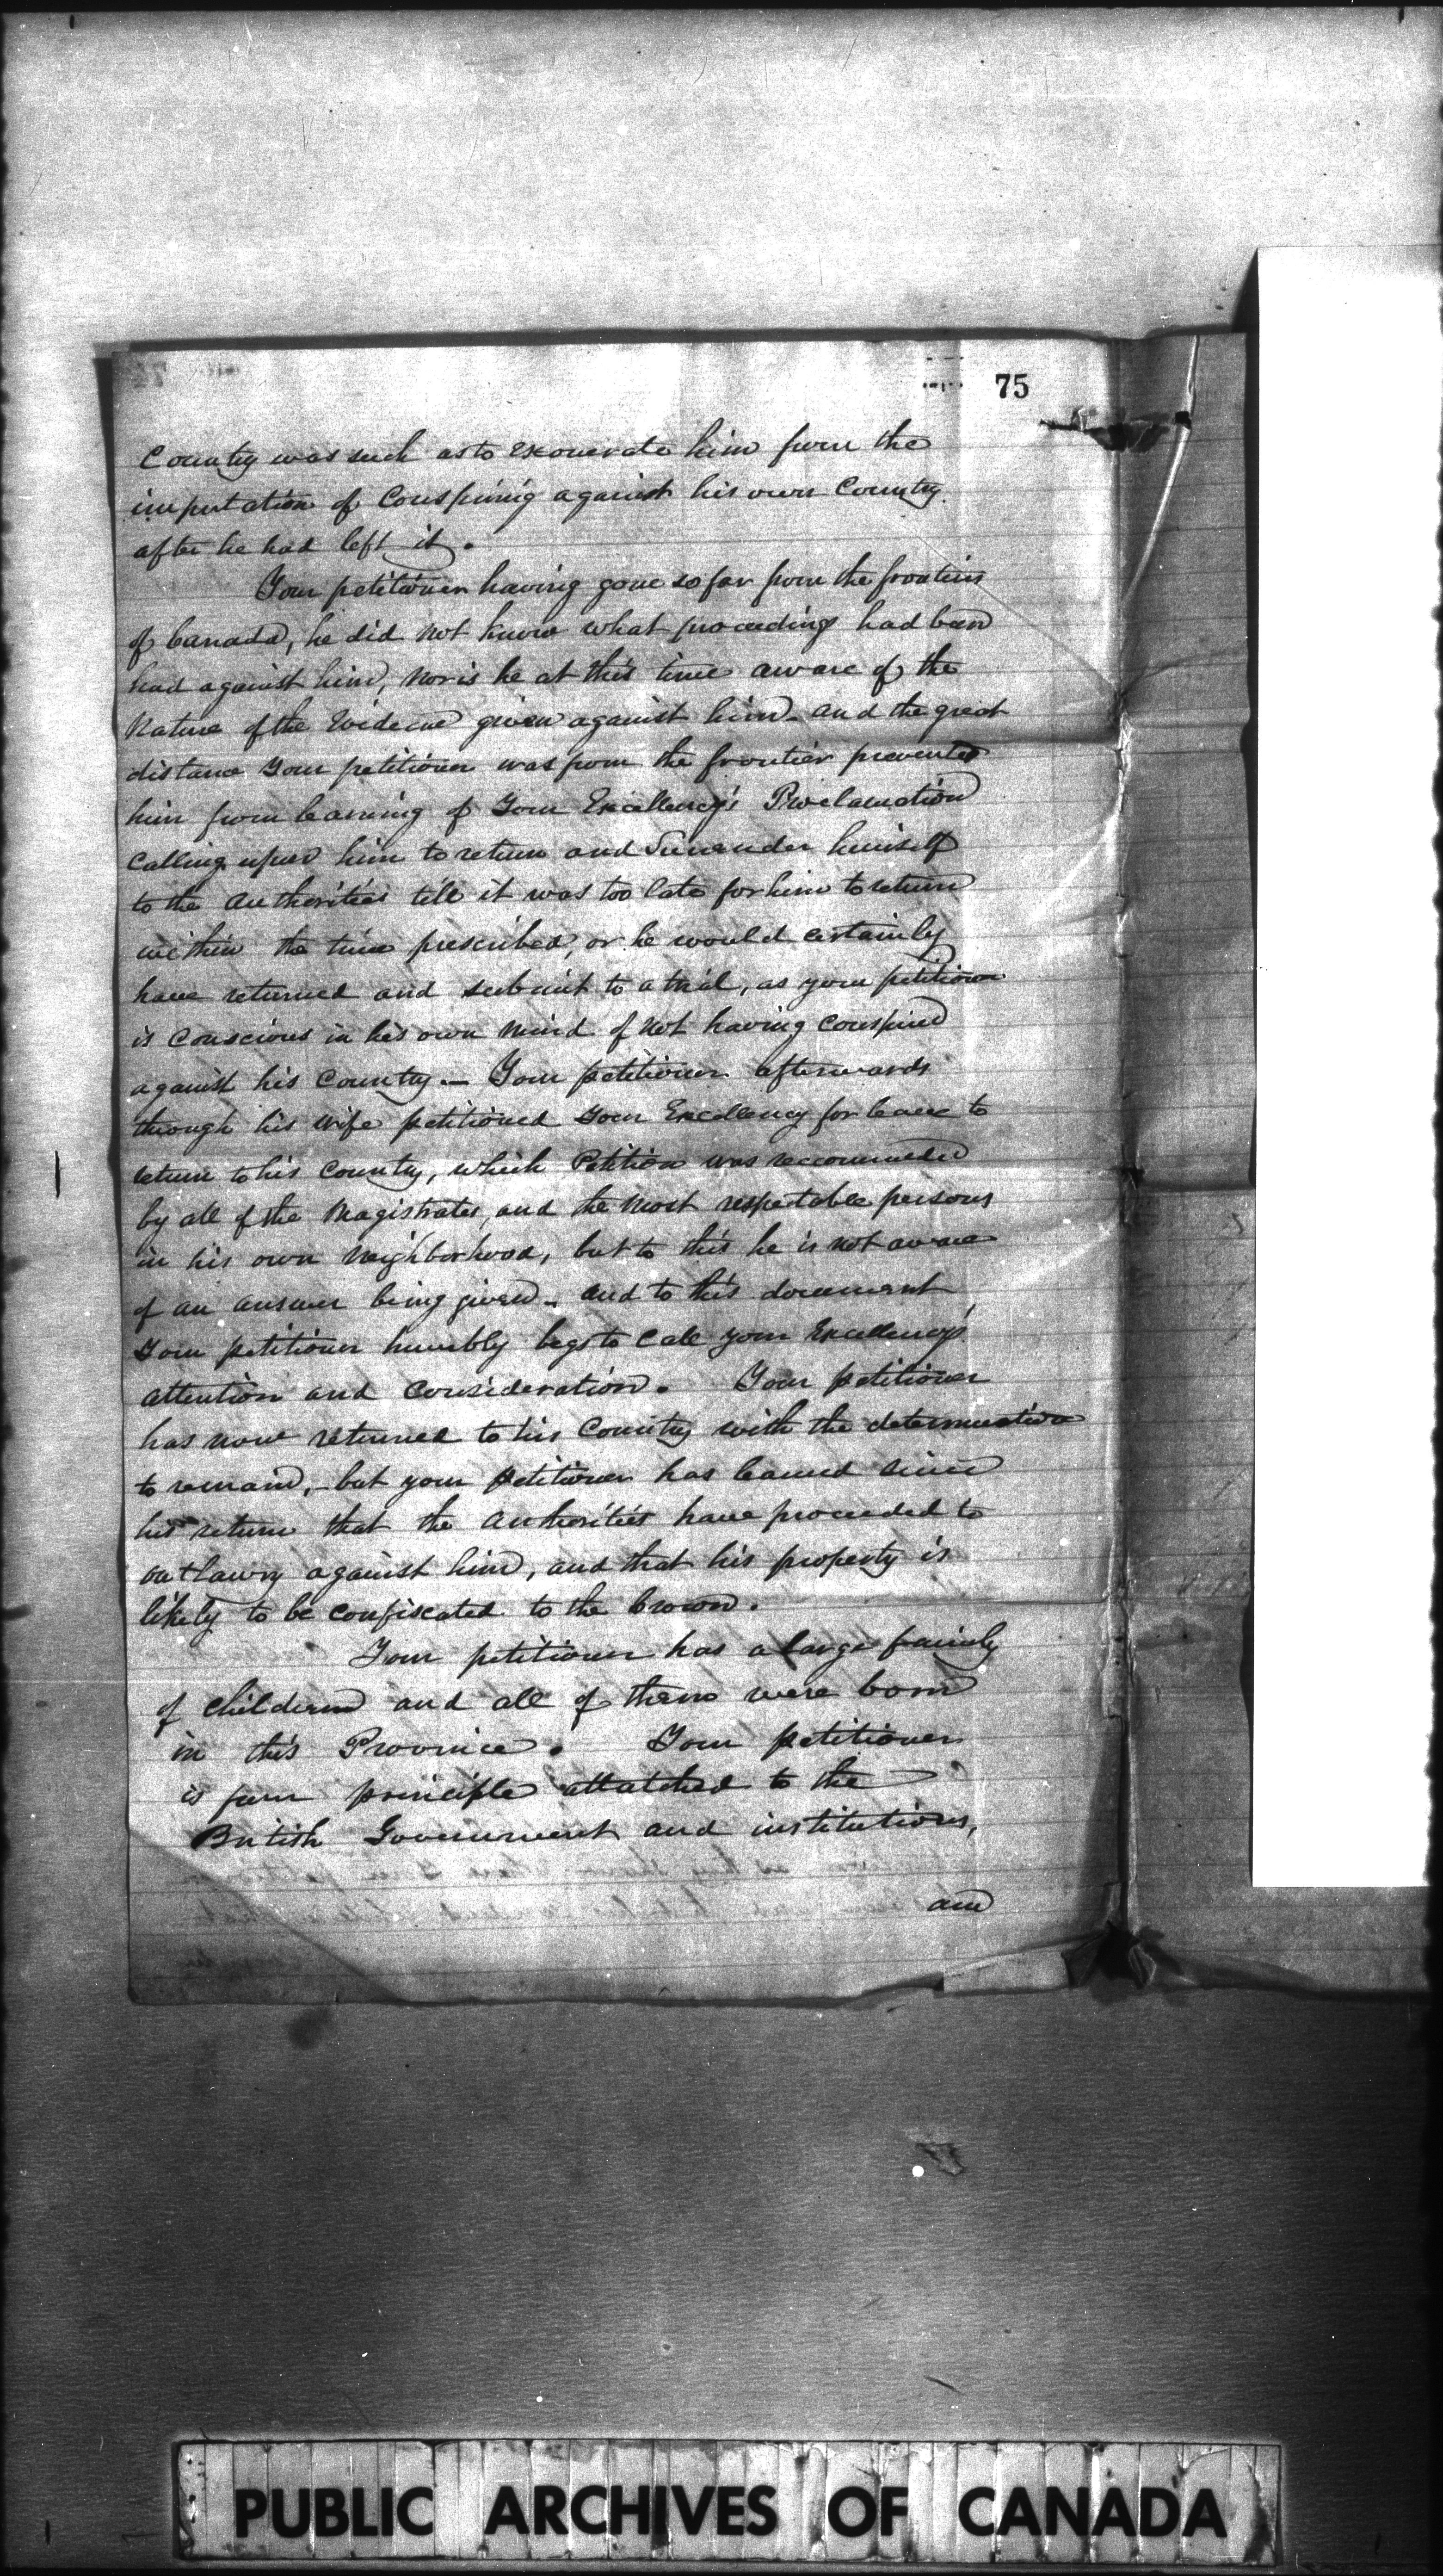 75
Country was such as to exonerate him from the
imputation of Conspiring against his own Country
after he had left it.
Your petitioner having gone so far from the frontiers
of Canada, he did not know what proceedings had been
had against him, nor is he at this time aware of the
Nature of the Evidence given against him - and the great
distance Your petitioner was from the frontier prevented
him from learning of Your Excellency's Proclamation
Calling upon him to return and Surrender himself
to the Authorities till it was too late for him to return
within the time prescribed, or he would certainly
have returned and submit to a trial, as your petitioner
is Conscious in his own Mind of Not having Conspired
against his Country. - Your petitioner afterwards
through his wife petitioned Your Excellency for leave to
return to his Country, which Petition was reccommended
by all of the Magistrates, and the Most respectable persons
in his own Neighborhood, but to this he is not aware
of an answer being given - and to this document
Your petitioner humbly begs to Call your Excellency's
attention and Consideration. Your petitioner
has now returned to his Country with the determination
to remain, - but your petitioner has learned since
his return that the Authorities have proceeded to
outlawry against him, and that his property is
likely to be confiscated to the Crown.
Your petitioner has a large family
of Childern and all of them were born
in this Province. Your petitioner
is from principle attatched to the
British Government and institutions,
and
PUBLIC ARCHIVES OF CANADA